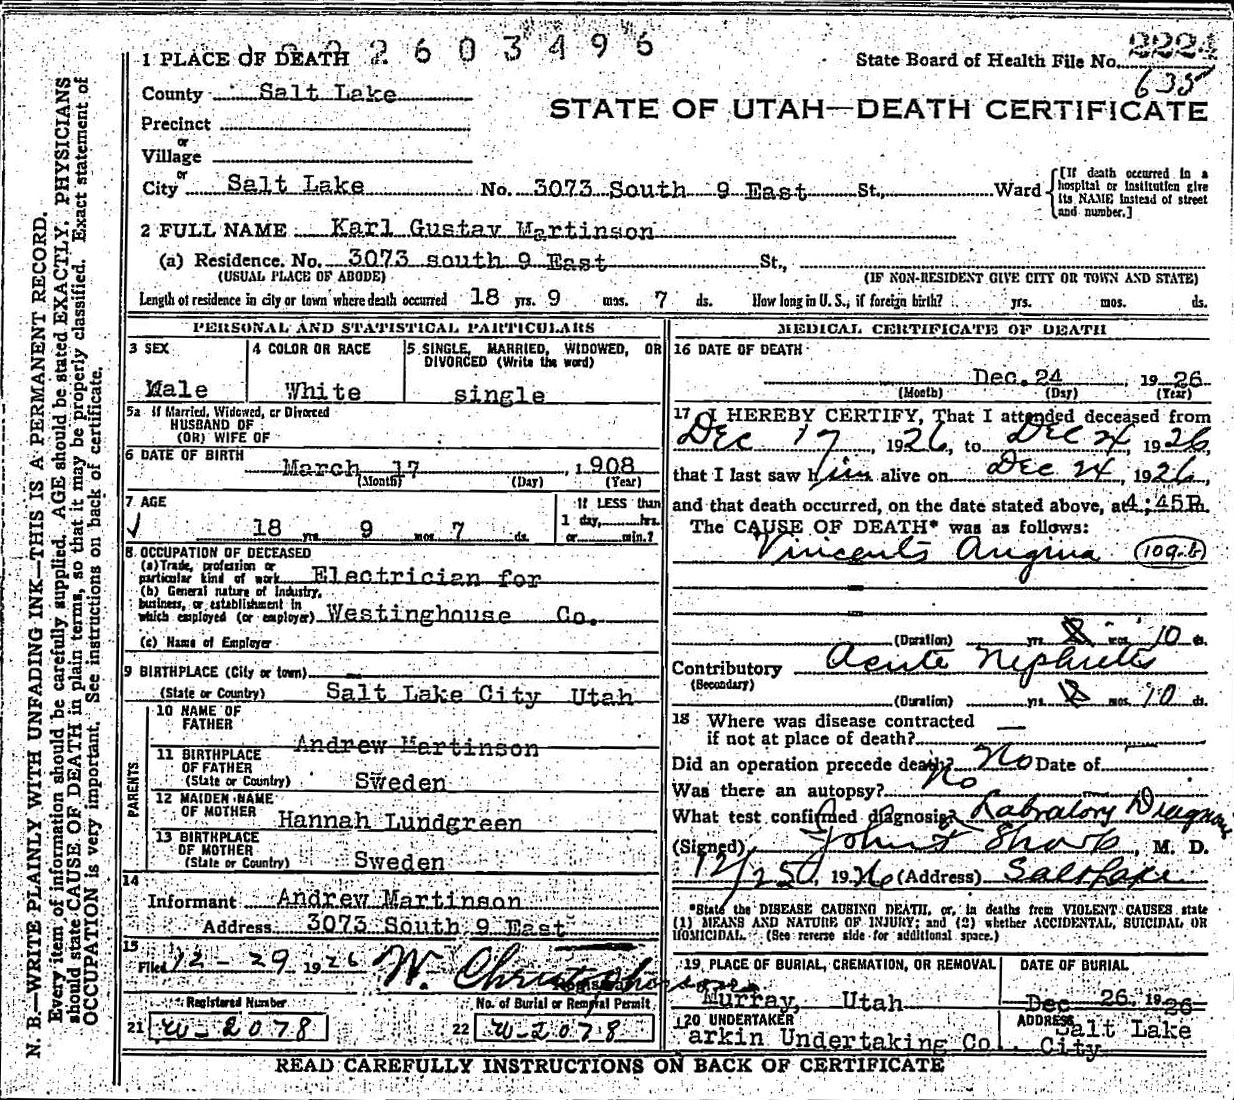 2603496
1 PLACE OF DEATH
State Board of Health File No. 2224
635
County Salt Lake
STATE OF UTAH—DEATH CERTIFICATE
Precinct
or
Village
or
City Salt Lake No. 3073 South 9 East St., Ward
[If death occurred in a hospital or institution give its NAME instead of street and number.]
2 FULL NAME Karl Gustav Martinson
(a) Residence. No. 3073 south 9 East St.,
(USUAL PLACE OF ABODE) (IF NON-RESIDENT GIVE CITY OR TOWN AND STATE)
Length of residence in city or town where death occurred 18 yrs. 9 mos. 7 ds. How long in U. S., if foreign birth? yrs. mos. ds.
PERSONAL AND STATISTICAL PARTICULARS
3 SEX
Male
4 COLOR OR RACE
White
5 SINGLE, MARRIED, WIDOWED, OR DIVORCED (Write the word)
single
5a If Married, Widowed, or Divorced
HUSBAND OF
(OR) WIFE OF
6 DATE OF BIRTH
March 17, 1908
(Month) (Day) (Year)
7 AGE
18 yrs. 9 mos. 7 ds.
If LESS than
1 day, hrs.
or min.?
8 OCCUPATION OF DECEASED
(a) Trade, profession or
particular kind of work Electrician for
(b) General nature of Industry,
business, or establishment in
which employed (or employer) Westinghouse Co.
(c) Name of Employer
9 BIRTHPLACE (City or town)
(State or Country) Salt Lake City Utah
PARENTS
10 NAME OF
FATHER
Andrew Martinson
11 BIRTHPLACE
OF FATHER
(State or Country) Sweden
12 MAIDEN NAME
OF MOTHER Hannah Lundgreen
13 BIRTHPLACE
OF MOTHER
(State or Country) Sweden
14
Informant Andrew Martinson
Address 3073 South 9 East
15
Filed 12-29 1926 W. Christopherson
Registrar
Registered Number
21 W-2078
No. of Burial or Removal Permit
22 W-2078
MEDICAL CERTIFICATE OF DEATH
16 DATE OF DEATH
Dec. 24, 1926
(Month) (Day) (Year)
17 I HEREBY CERTIFY, That I attended deceased from
Dec 17, 1926, to Dec 24 1926,
that I last saw him alive on Dec 24, 1926,
and that death occurred, on the date stated above, at 4:45P.m.
The CAUSE OF DEATH* was as follows:
Vincents Angina 109-b
(Duration) yrs. mos. 10 ds.
Contributory Acute Nephritis
(Secondary)
(Duration) yrs. mos. 10 ds.
18 Where was disease contracted
if not at place of death?
Did an operation precede death? No Date of
Was there an autopsy? No
What test confirmed diagnosis? Labratory Diagnosis
(Signed) John F Sharp, M. D.
12/25, 1926 (Address) Salt Lake
*State the DISEASE CAUSING DEATH, or, in deaths from VIOLENT CAUSES, state
(1) MEANS AND NATURE OF INJURY; and (2) whether ACCIDENTAL, SUICIDAL OR
HOMICIDAL. (See reverse side for additional space.)
19 PLACE OF BURIAL, CREMATION, OR REMOVAL
Murray, Utah
DATE OF BURIAL
Dec 26, 1926
20 UNDERTAKER
arkin Undertaking Co.
ADDRESS
Salt Lake
City
READ CAREFULLY INSTRUCTIONS ON BACK OF CERTIFICATE
N. B.—WRITE PLAINLY WITH UNFADING INK—THIS IS A PERMANENT RECORD.
Every item of information should be carefully supplied. AGE should be stated EXACTLY. PHYSICIANS
should state CAUSE OF DEATH in plain terms, so that it may be properly classified. Exact statement of
OCCUPATION is very important. See instructions on back of certificate.